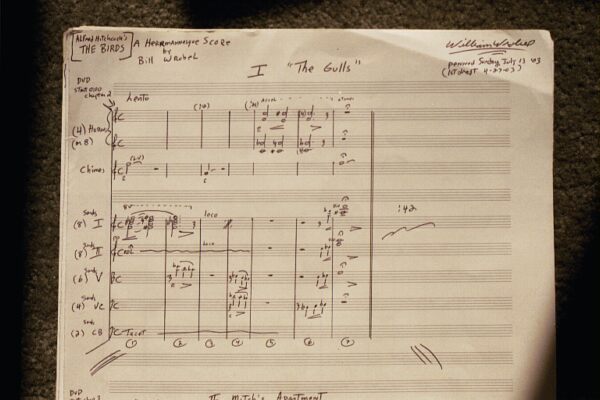 Alfred Hitchcock's
THE BIRDS
A Herrmannesque Score
by
Bill Wrobel
penned Sunday, July 13 '03
(1st draft 4-27-03)
I "The Gulls"
DVD
Start 0:00
chapter 2
Lento
(4) Horns
Chimes
(8) I
loco
:42
(8) II
loco
(6) V
(4) VC
(2) CB
Tacet
① ② ③ ④ ⑤ ⑥ ⑦
DVD
II Mitch's Apartment